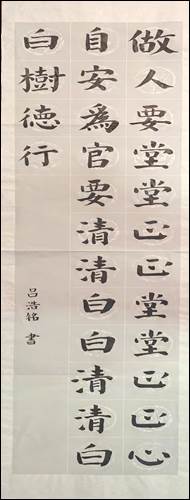 做人要堂堂正正堂堂正正心
自安爲官要清清白白清清白
白樹徳行
吕浩铭 書